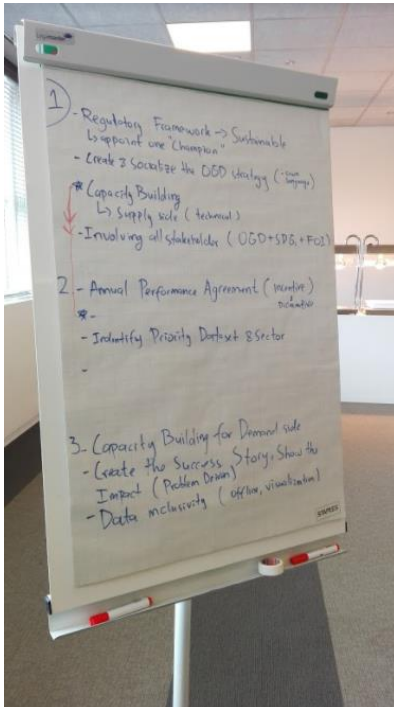 1
- Regulatory Framework → Sustainable
↳ appoint one "Champion"
- Create & Socialize the OGD strategy (
language)
* Capacity Building
↳ Supply side (technical)
- Involving all stakeholder (OGD + SDGs + FOI)
2. - Annual Performance Agreement (Incentive)
* -
- Indentify Priority Dataset & Sector
-
3. - Capacity Building for Demand side
- Create the Success Story, Show the
Impact (Problem Driven)
- Data inclusivity (offline, visualization)
STAPLES